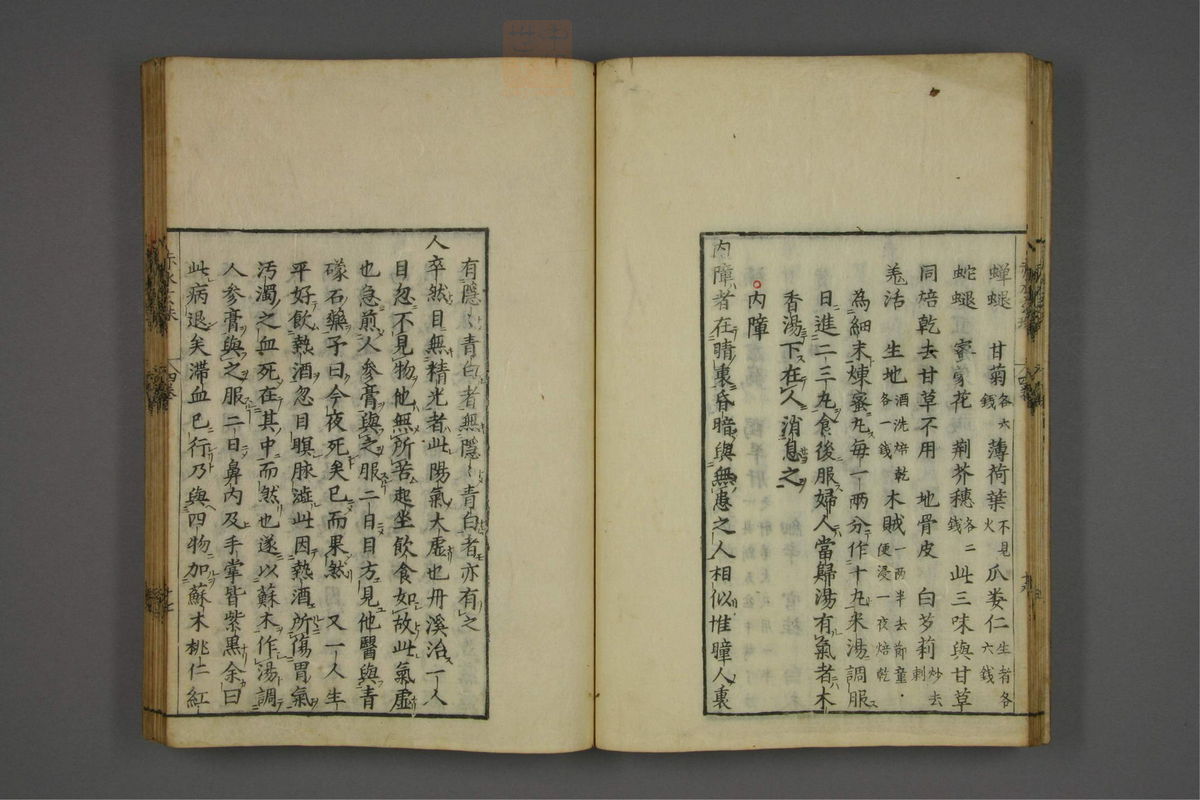 蟬蛻 甘菊各六錢 薄荷葉不見火 瓜蔞仁生者各六錢
蛇蛻 蜜蒙花 荆芥穗各二錢 此三味與甘草
同焙乾去甘草不用 地骨皮 白蒺莉炒去刺
羌活 生地酒洗焙乾各一錢 木賊一兩半去節童便浸一夜焙乾
為細末煉蜜丸每一兩分作十丸米湯調服
日進二三丸食後服婦人當歸湯有氣者木
香湯下在人消息之
內障
內障者在睛裏昏暗與無患之人相似惟瞳人裏
有隱隱青白者無隱隱青白者亦有之
人卒然目無精光者此陽氣大虛也丹溪治一人
目忽不見物他無所苦起坐飲食如故此氣虛
也急煎人參膏與之服二日目方見他醫與青
礞石藥予曰今夜死矣已而果然 又一人生
平好飲熱酒忽目暝脉澁此因熱酒所傷胃氣
汚濁之血死在其中而然也遂以蘇木作湯調
人參膏與之服二日鼻內及手掌皆紫黑余曰
此病退矣滯血已行乃與四物加蘇木桃仁紅